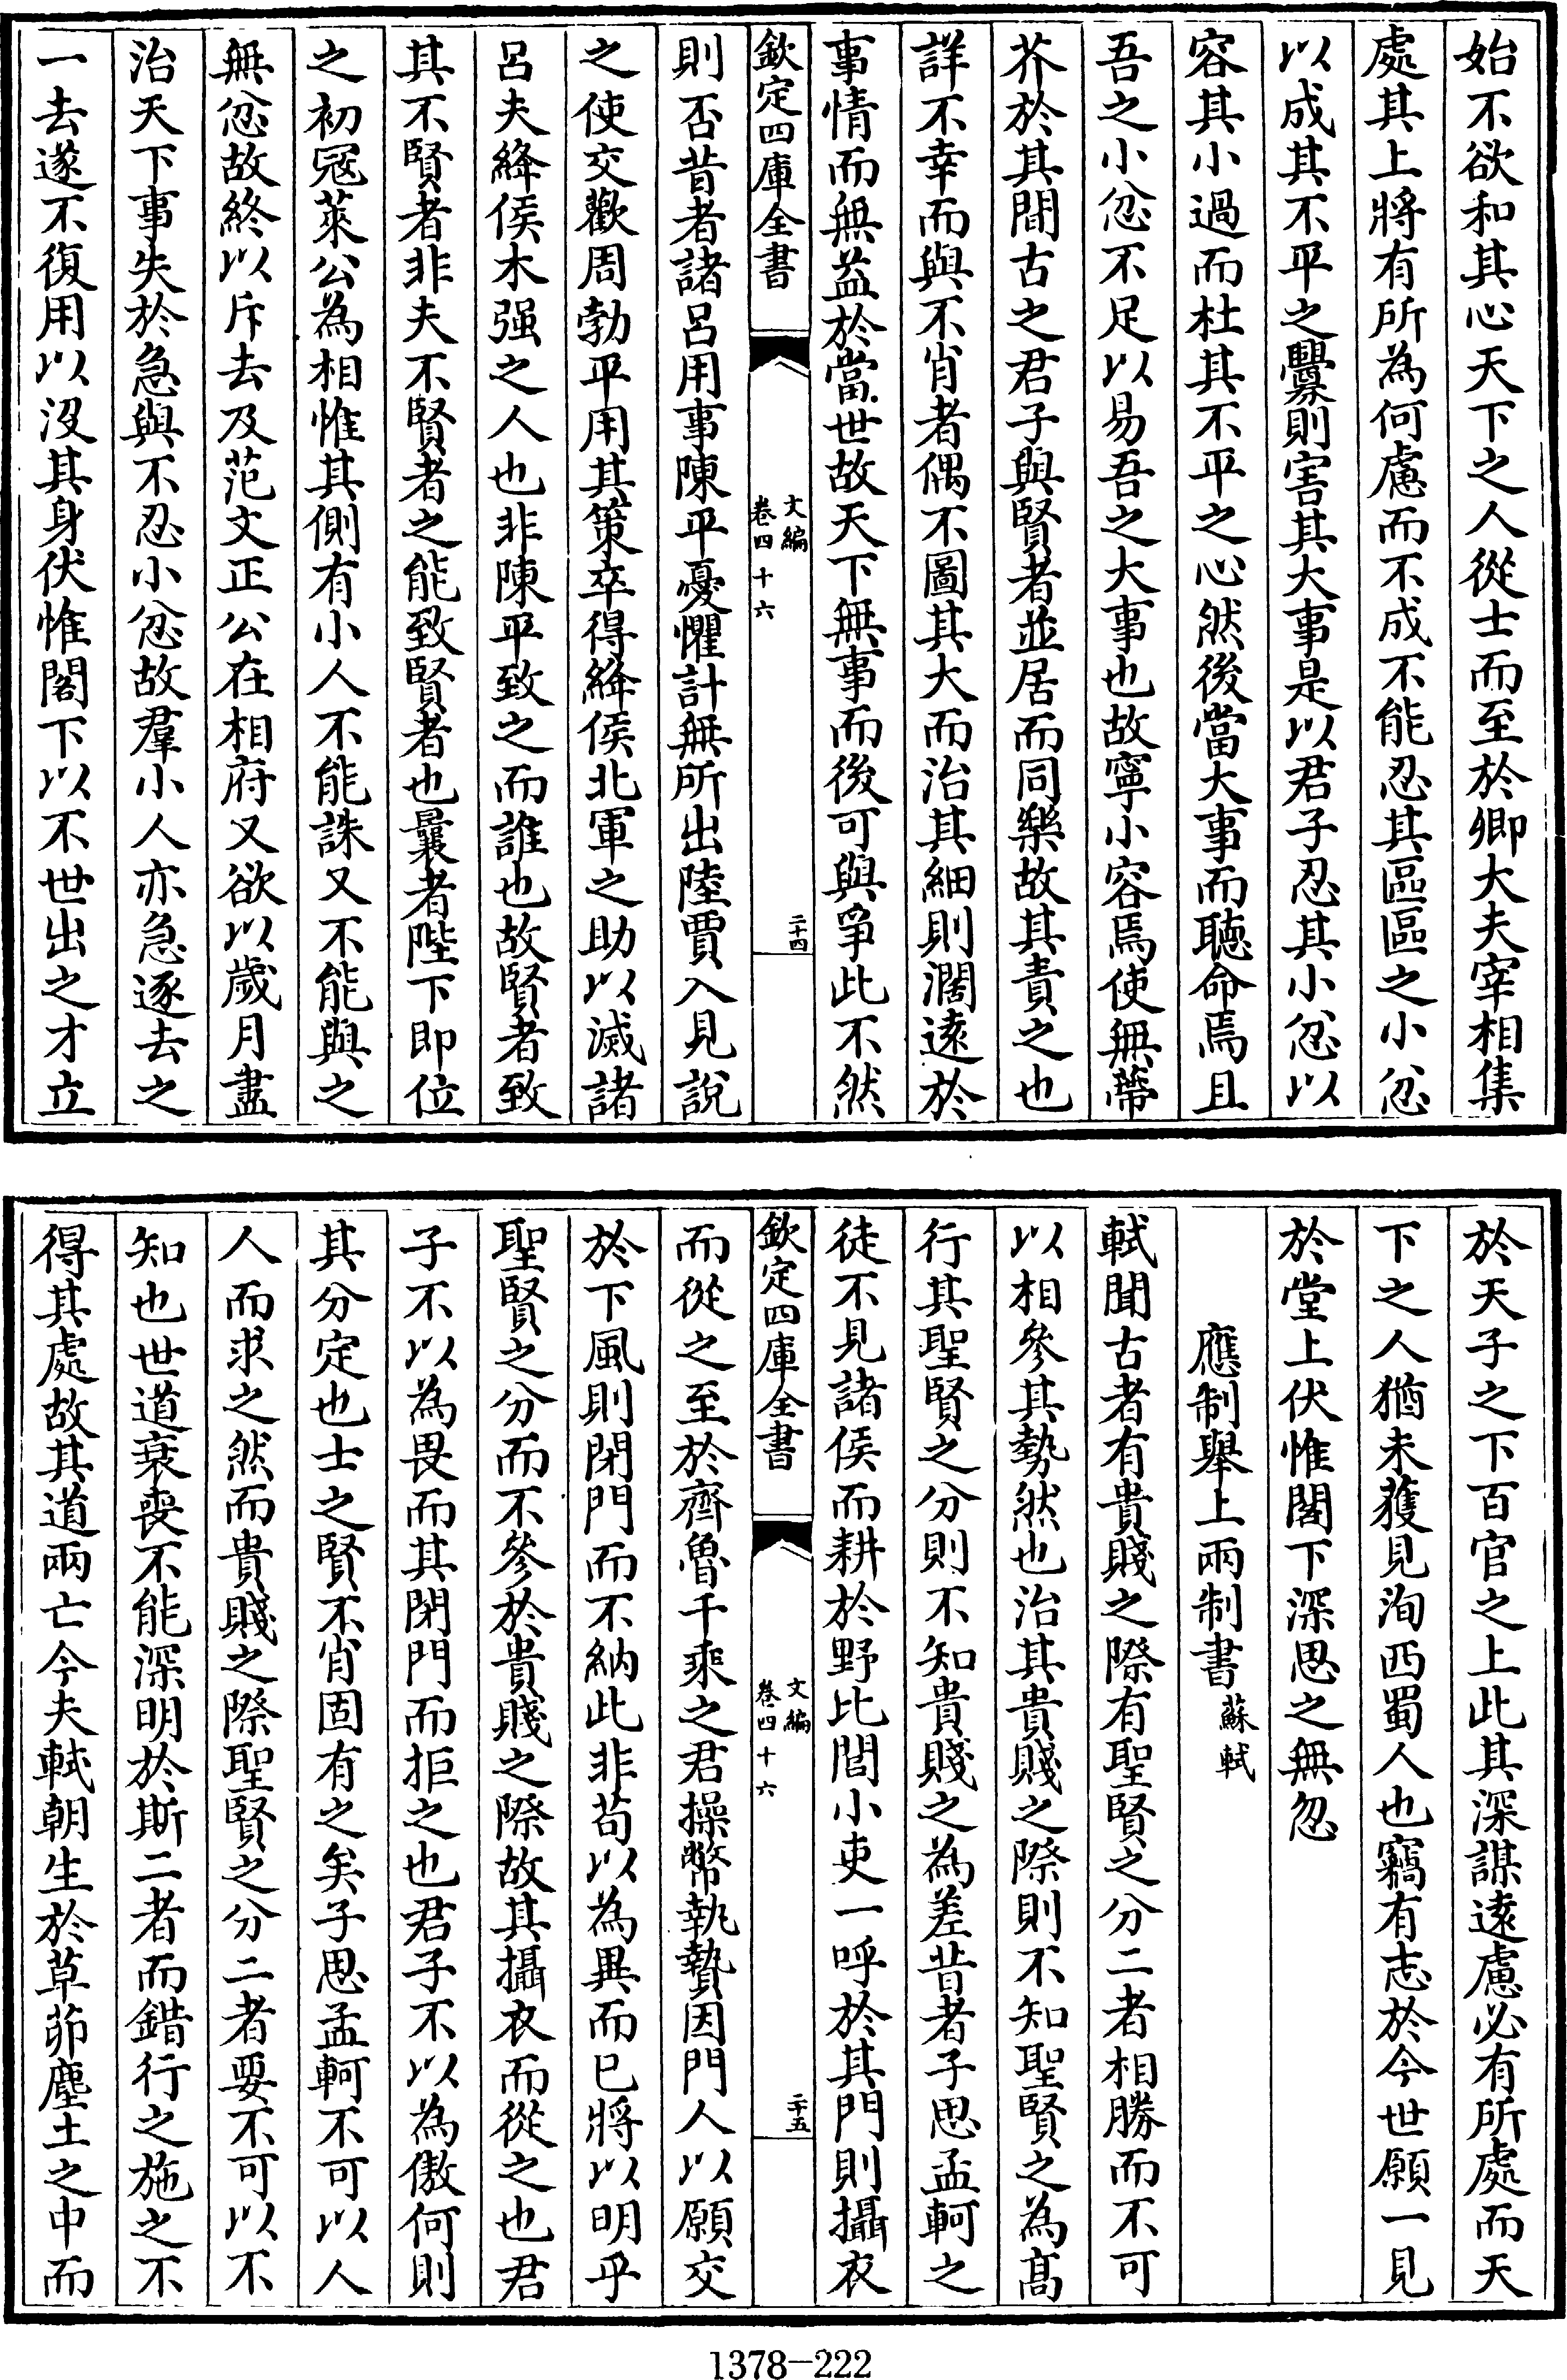 始不欲和其心天下之人從士而至於卿大夫宰相集
處其上將有所為何慮而不成不能忍其區區之小忿
以成其不平之釁則害其大事是以君子忍其小忿以
容其小過而杜其不平之心然後當大事而聽命焉且
吾之小忿不足以易吾之大事也故寧小容焉使無蔕
芥於其間古之君子與賢者並居而同樂故其責之也
詳不幸而與不肖者偶不圖其大而治其細則濶遠於
事情而無益於當世故天下無事而後可與爭此不然
欽定四庫全書
文編
卷四十六
二十四
則否昔者諸呂用事陳平憂懼計無所出陸賈入見說
之使交歡周勃平用其策卒得絳侯北軍之助以滅諸
呂夫絳侯木强之人也非陳平致之而誰也故賢者致
其不賢者非夫不賢者之能致賢者也曩者陛下即位
之初冦萊公為相惟其側有小人不能誅又不能與之
無忿故終以斥去及范文正公在相府又欲以歲月盡
治天下事失於急與不忍小忿故羣小人亦急逐去之
一去遂不復用以沒其身伏惟閣下以不世出之才立
於天子之下百官之上此其深謀遠慮必有所處而天
下之人猶未獲見洵西蜀人也竊有志於今世願一見
於堂上伏惟閣下深思之無忽
應制舉上兩制書 蘇軾
軾聞古者有貴賤之際有聖賢之分二者相勝而不可
以相參其勢然也治其貴賤之際則不知聖賢之為髙
行其聖賢之分則不知貴賤之為差昔者子思孟軻之
徒不見諸侯而耕於野比閭小吏一呼於其門則攝衣
欽定四庫全書
文編
卷四十六
二十五
而從之至於齊魯千乘之君操幣執贄因門人以願交
於下風則閉門而不納此非苟以為異而已將以明乎
聖賢之分而不參於貴賤之際故其攝衣而從之也君
子不以為畏而其閉門而拒之也君子不以為傲何則
其分定也士之賢不肖固有之矣子思孟軻不可以人
人而求之然而貴賤之際聖賢之分二者要不可以不
知也世道衰喪不能深明於斯二者而錯行之施之不
得其處故其道兩亡今夫軾朝生於草茆塵土之中而
1378-222